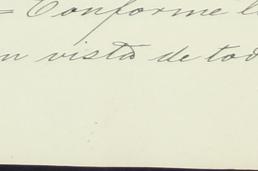 = Conforme l
n vista de tod